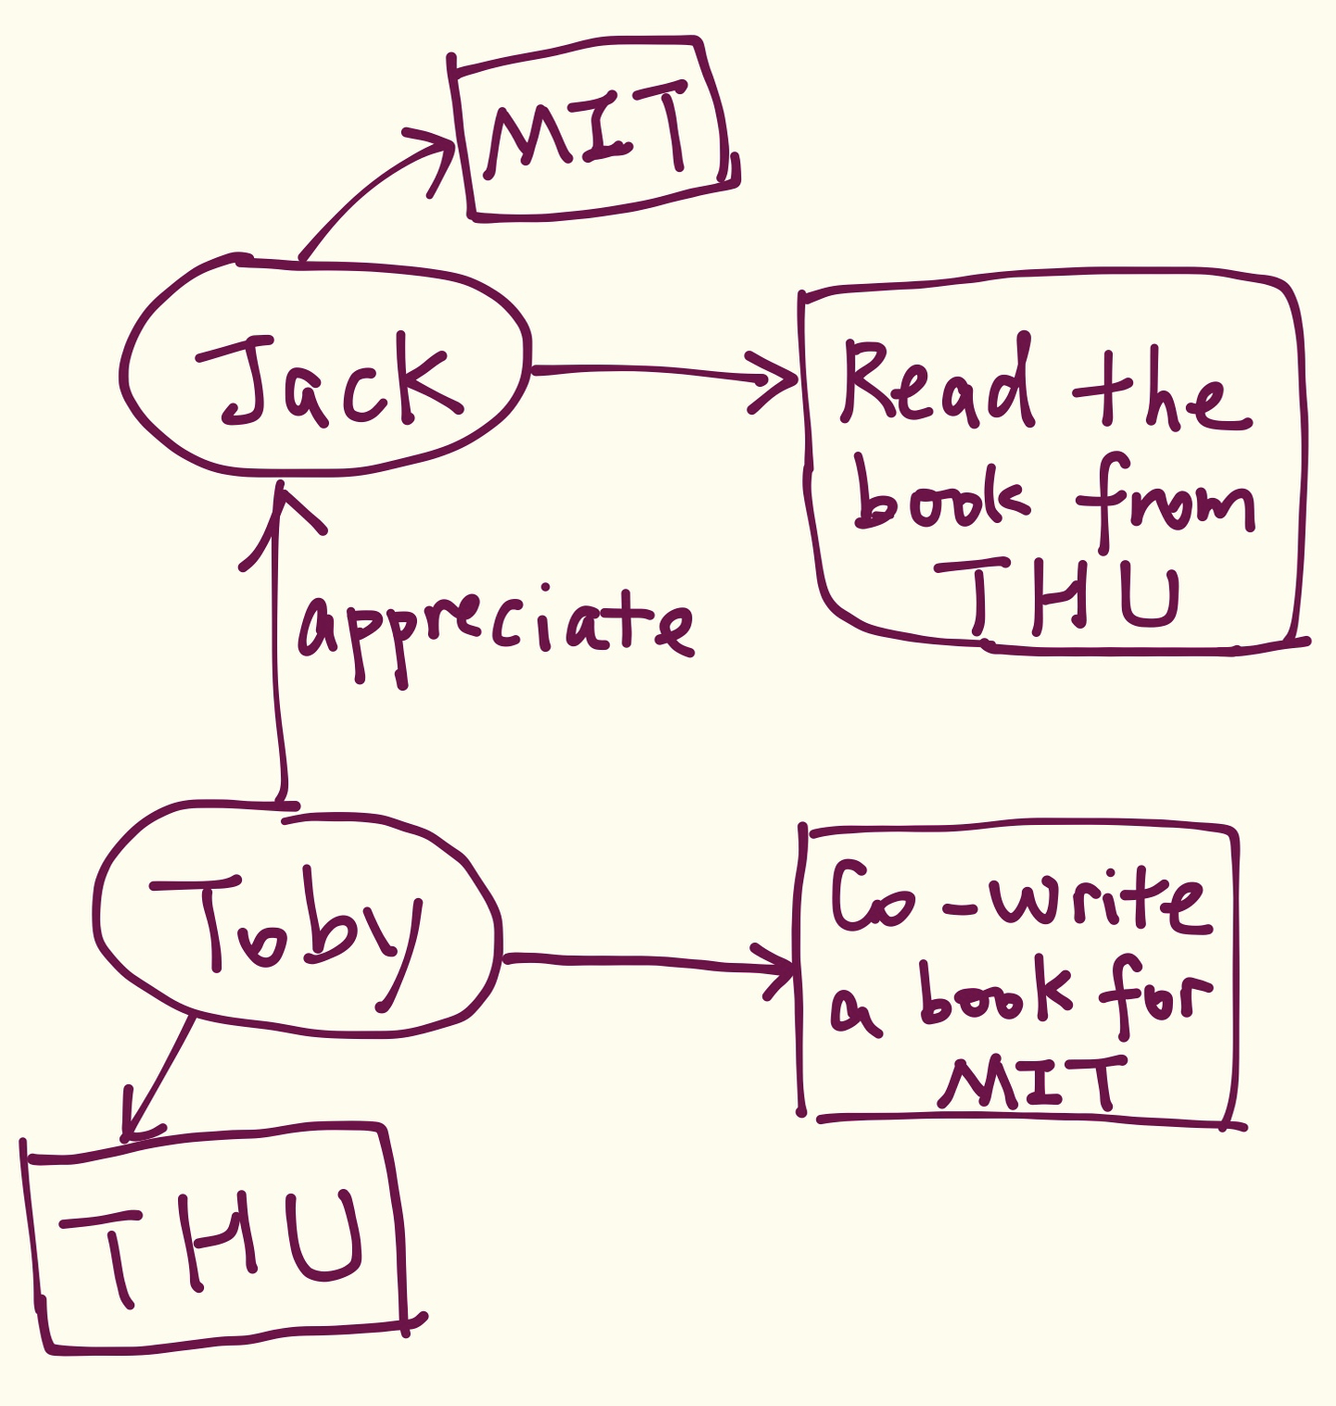 MIT
Jack
Read the
book from
THU
appreciate
Toby
Co-write
a book for
MIT
THU